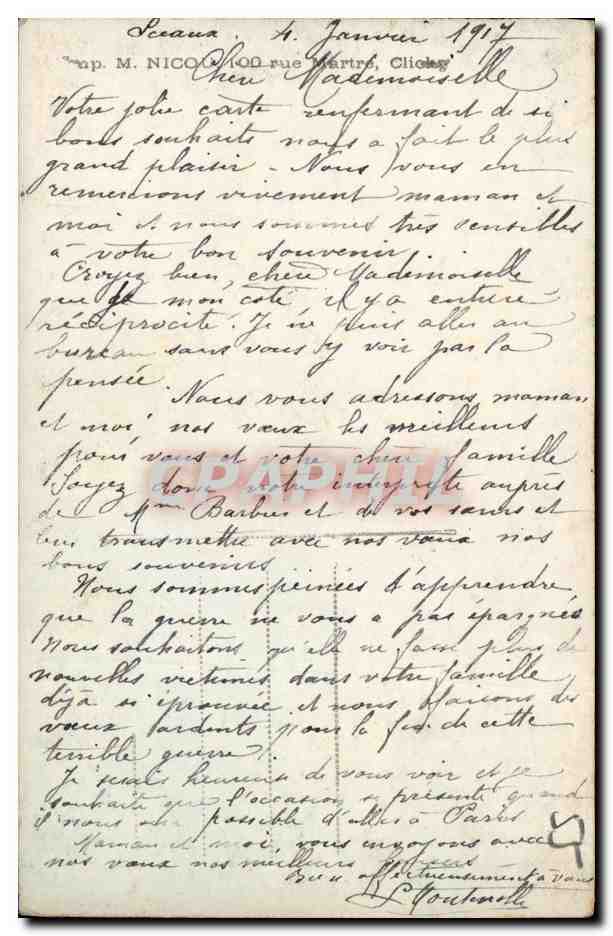 Sceaux. 4. Janvier 1917
Imp. M. NICOU 100 rue Martre, Clichy
Chère Mademoiselle
Votre jolie carte renfermant de si
bons souhaits nous a fait le plus
grand plaisir - Nous vous en
remercions vivement maman et
moi et nous sommes très sensibles
à votre bon souvenir.
Croyez bien, chère Mademoiselle
que de mon coté il y a entière
réciprocité. Je ne puis aller au
bureau sans vous y voir par la
pensée.
Nous vous adressons, maman
et moi, nos vœux les meilleurs
pour vous et votre chère famille
Soyez donc notre interprète auprès
de Mme Barbier et de vos sœurs et
leur transmettre avec nos vœux nos
bons souvenirs
CPARAMA
Nous sommes peinées d'apprendre
que la guerre ne vous a pas épargnés
Nous souhaitons qu'elle ne fasse plus de
nouvelles victimes dans votre famille
déjà si éprouvée et nous faisons des
vœux ardents pour la fin de cette
terrible guerre.
Je serais heureuse de vous voir et je
souhaite que l'occasion se présente quand
il nous sera possible d'aller à Paris
Maman et moi, vous envoyons avec
nos vœux nos meilleurs
Bien affectueusement à vous